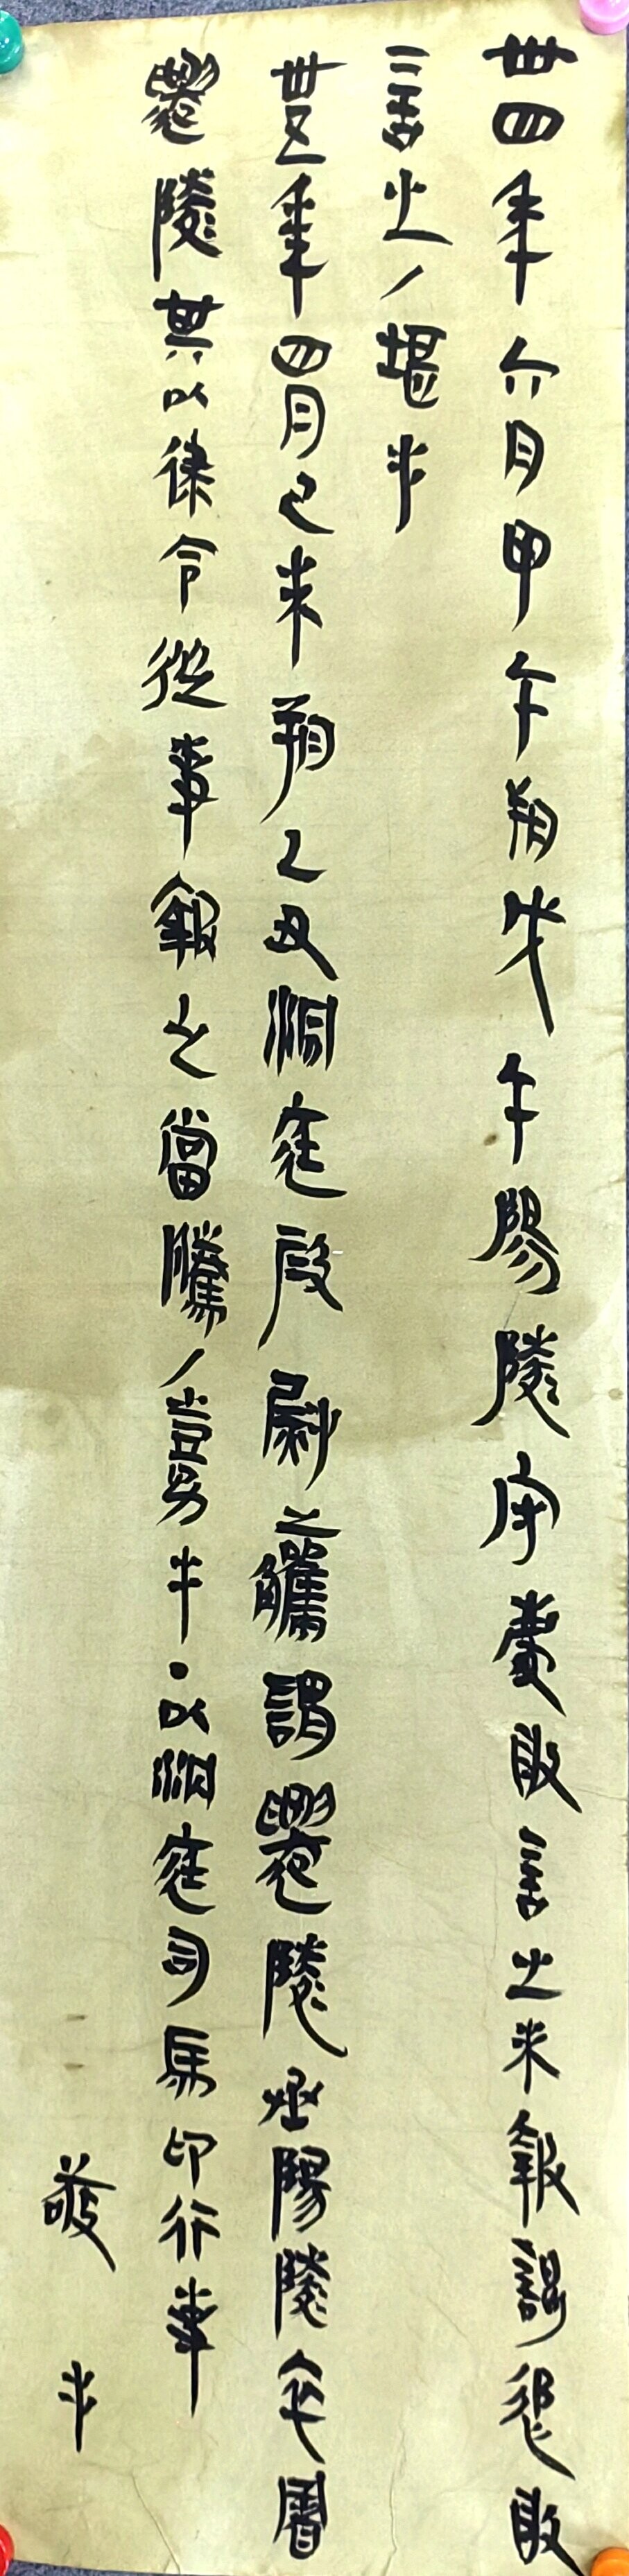 卅四年六月甲午朔戊午陽陵守慶敢言之未報謁追敢
言之／堪手
卅五年四月己未朔乙丑洞庭叚尉觿謂遷陵丞陽陵卒署
遷陵其以律令從事報之當騰／嘉手·以洞庭司馬印行事
敬手